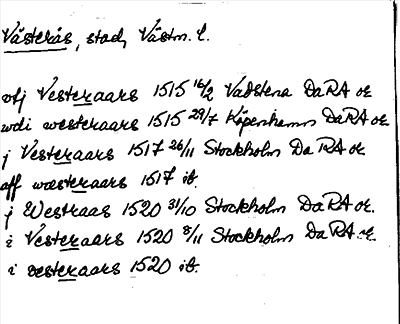 Västerås, stad, Västm. l.
vtj Vesteraars 1515 16/2 Vadstena DaRA or.
wdi westeraars 1515 29/7 Köpenhamn DaRA or.
j Vesteraars 1517 26/11 Stockholm DaRA or
aff wæsteraars 1517 ib.
j Westraas 1520 31/10 Stockholm DaRA or.
i Vesteraars 1520 8/11 Stockholm DaRA or.
i vesteraars 1520 ib.